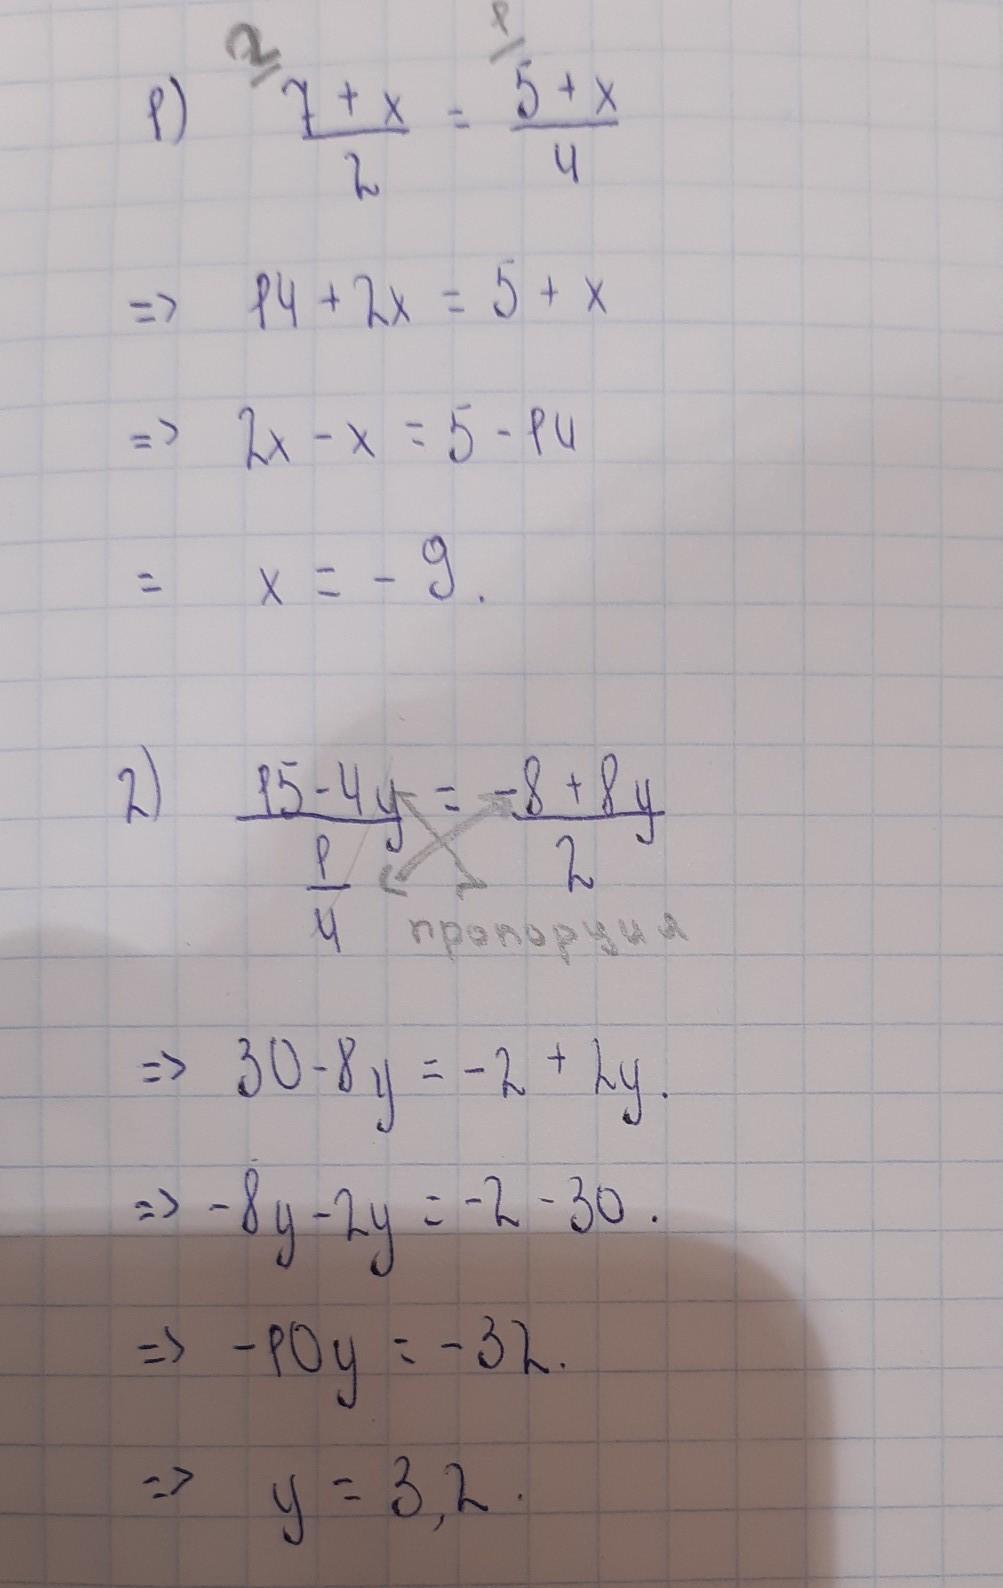 2 1
1) 7 + x / 2 = 5 + x / 4
=> 14 + 2x = 5 + x
=> 2x - x = 5 - 14
= x = - 9.
2) 15 - 4y / 1/4 = -8 + 8y / 2
пропорция
=> 30 - 8y = -2 + 2y.
=> -8y - 2y = -2 - 30.
=> -10y = -32.
=> y = 3,2.